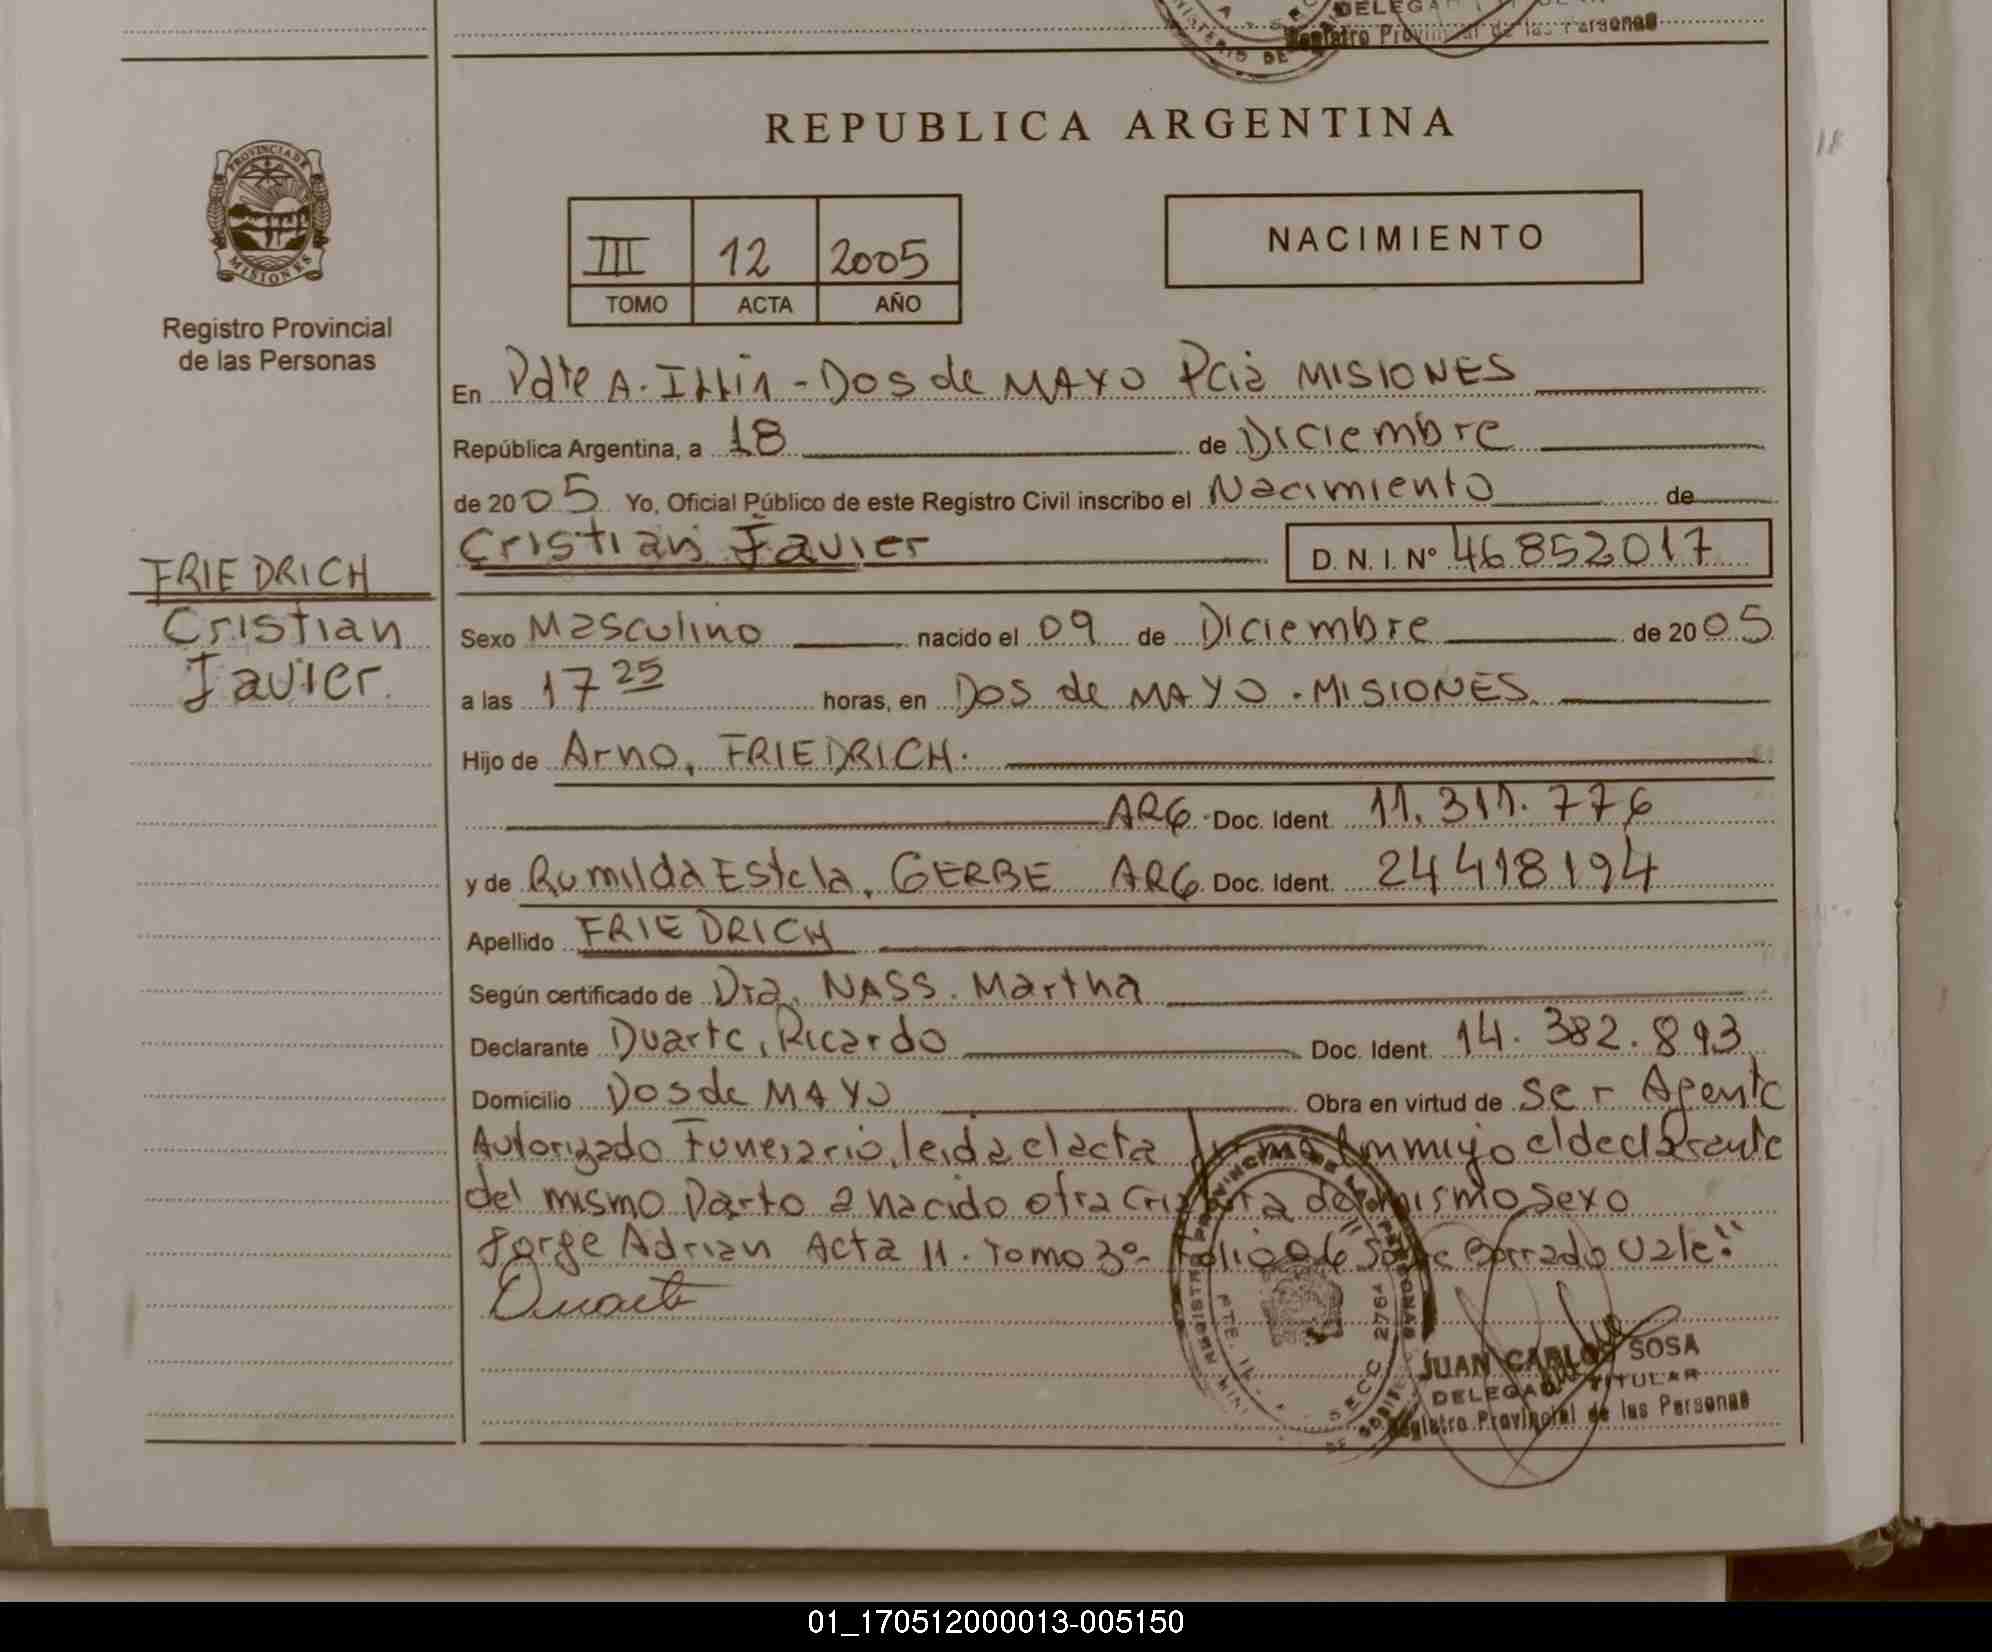 DELEGA
Registro Provincial de las Personas
REPUBLICA ARGENTINA
PROVINCIA DE
MISIONES
Registro Provincial
de las Personas
III 12 2005
TOMO ACTA AÑO
NACIMIENTO
En Pdte A. Illia - Dos de MAYO Pcia MISIONES
República Argentina, a 18 de Diciembre
de 2005 Yo, Oficial Público de este Registro Civil inscribo el Nacimiento de
Cristian Javier D. N. I. Nº 46852017
FRIEDRICH
Cristian
Javier.
Sexo Masculino nacido el 09 de Diciembre de 2005
a las 17 25 horas, en Dos de MAYO. MISIONES.
Hijo de Arno, FRIEDRICH.
ARG. Doc. Ident. 11.311.776
y de Rumilda Estela, GERBE ARG. Doc. Ident. 24418194
Apellido FRIEDRICH
Según certificado de Dra. NASS. Martha
Declarante Duarte, Ricardo Doc. Ident. 14.382.893
Domicilio Dos de MAYO Obra en virtud de ser Agente
Autorizado Funerario, leida el acta firma conmigo el declarante
del mismo Parto a nacido otra criatura del mismo sexo
Jorge Adrian Acta 11. Tomo 3º- Folio 06 "Sobre Borrado Vale".
Duarte
SECC. 2764
JUAN CARLOS SOSA
DELEGADO TITULAR
Registro Provincial de las Personas
01_170512000013-005150